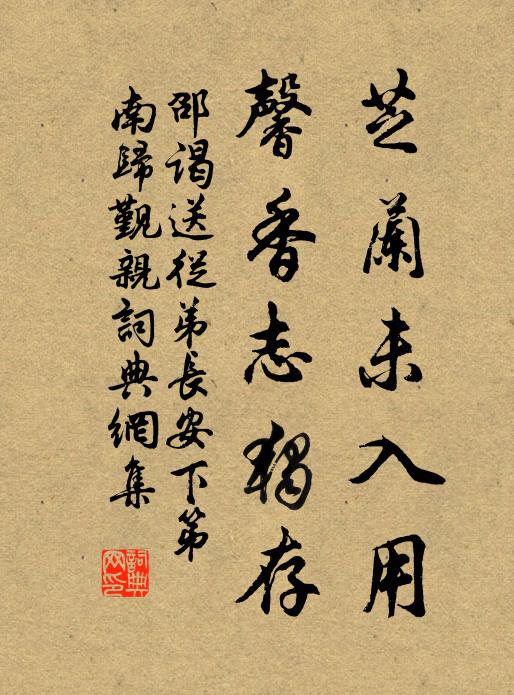 芝蘭未入用
馨香志獨存
邵謁送從弟長安下第
南歸觀親詞典網集
詞典网印